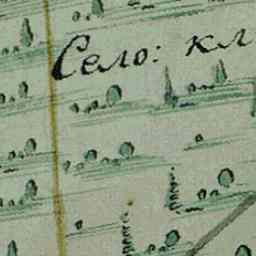 Село: кл